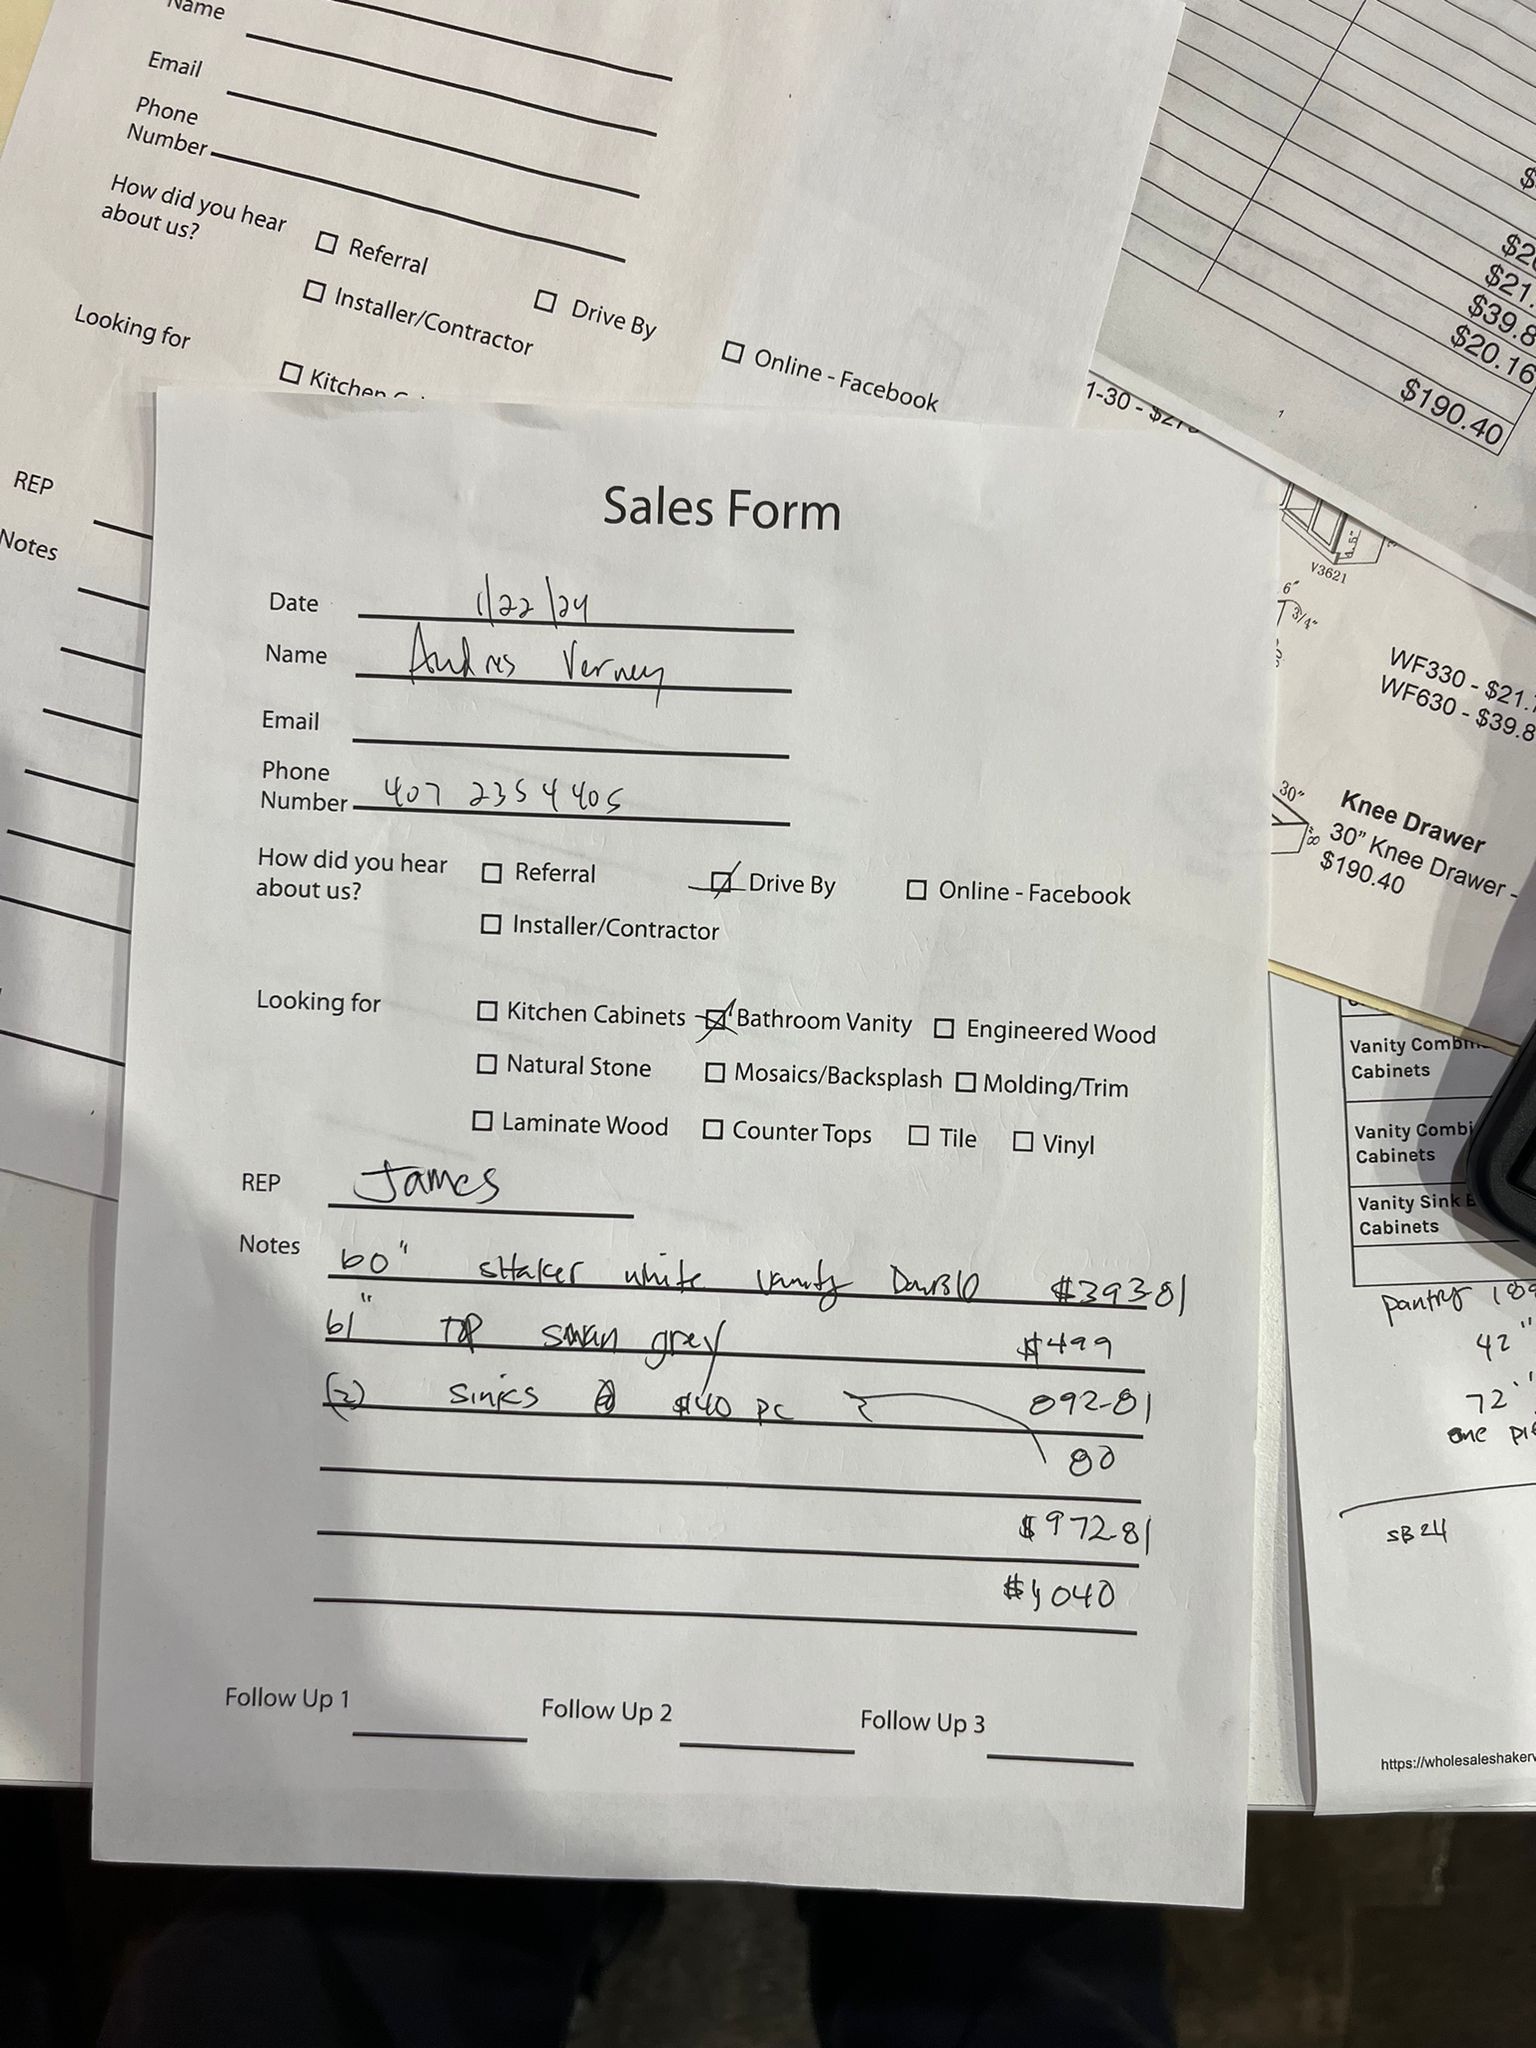 Name
Email
Phone
Number
How did you hear
about us?
Referral
Drive By
Online - Facebook
Installer/Contractor
Looking for
Kitchen
REP
Notes
$21.
$39.8
$20.16
$190.40
1-30 -
V3621
6"
3/4"
WF330 - $21.
WF630 - $39.8
30"
Knee Drawer
30" Knee Drawer -
$190.40
Vanity Combin
Cabinets
Vanity Combi
Cabinets
Vanity Sink B
Cabinets
pantry 189
42"
72"
one pie
SB24
https://wholesaleshakerv
Sales Form
Date 1/22/24
Name Andres Verney
Email
Phone
Number 407 235 4405
How did you hear
about us?
Referral Drive By Online - Facebook
Installer/Contractor
Looking for Kitchen Cabinets Bathroom Vanity Engineered Wood
Natural Stone Mosaics/Backsplash Molding/Trim
Laminate Wood Counter Tops Tile Vinyl
REP James
Notes 60" shaker white vanity Double $393-81
61" TOP swan grey $499
(2) sinks @ $40 pc 892-81
80
$972-81
$1,040
Follow Up 1 Follow Up 2 Follow Up 3